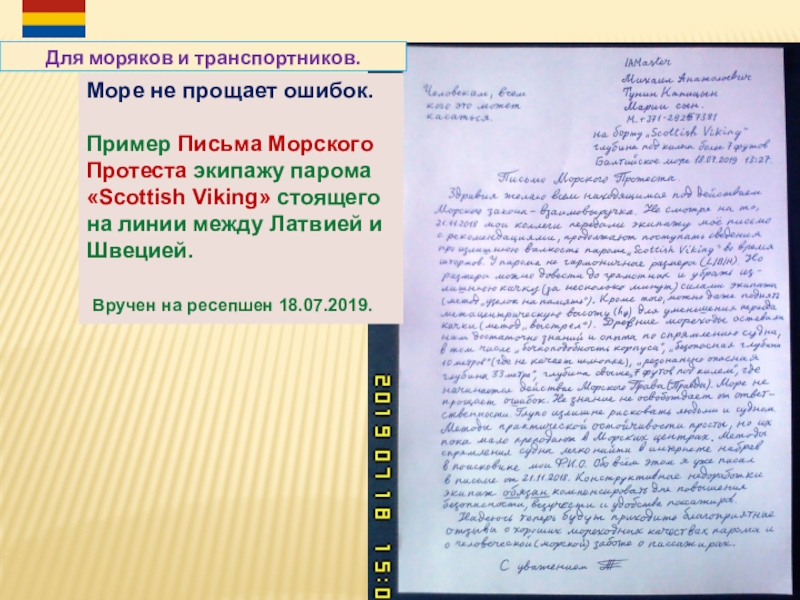 Для моряков и транспортников.
Море не прощает ошибок.
Пример Письма Морского
Протеста экипажу парома
«Scottish Viking» стоящего
на линии между Латвией и
Швецией.
Вручен на ресепшен 18.07.2019.
IAMaster
Михаил Анатольевич
Тунин Капицын
Марии сын.
Человекам, всем
кого это может
касаться.
на борту „Scottish Viking"
глубина под килем более 7 футов
Балтийское море 18.07.2019 13:27.
Письмо Морского Протеста.
Здравия желаю всем находящимся под действием
Морского закона - взаимовыручка. Не смотря на то,
21.11.2018 мои коллеги передали экипажу моё письмо
с рекомендациями, продолжают поступать сведения
про излишнюю валкость парома „Scottish Viking" во время
штормов. У парома не гармоничные размеры (L/B/H). Но
размеры можно довести до грамотных и убрать из-
лишнюю качку (за несколько минут) силами экипажа
(метод „узелок на память"). Кроме того, можно даже поднять
метацентрическую высоту (h₀) для уменьшения периода
качки (метод „выстрел"). Древние мореходы оставили
нам достаточно знаний и опыта по спрямлению судна,
в том числе „бочкоподобность корпуса", „безопасная глубина
10 метров" (где не качает шлюпке), „резонансно опасная
глубина 33 метра", глубина свыше „7 футов под килем", где
начинается действие Морского Права (Правды). Море не
прощает ошибок. Не знание не освобождает от ответ-
ственности. Глупо излишне рисковать людьми и судном.
Методы практической остойчивости просты, но их
пока мало преподают в Морских центрах. Методы
спрямления судна легко найти в интернете набрав
в поисковике мои Ф.И.О. Обо всём этом я уже писал
в письме от 21.11.2018. Конструктивные недоработки
экипаж обязан компенсировать для повышения
безопасности, везучести и удобства пассажиров.
Надеюсь теперь будут приходить благоприятные
отзывы о хороших мореходных качествах парома и
о человеческой (морской) заботе о пассажирах.
С уважением
2019 07 18 15:0